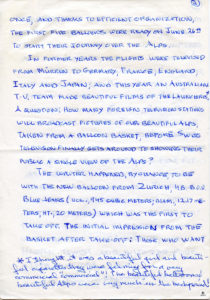 3)
ONCE, AND THANKS TO EFFICIENT ORGANIZATION,
THE FIRST FIVE BALLOONS WERE READY ON JUNE 26TH
TO START THEIR JOURNEY OVER THE ALPS.
IN FORMER YEARS THE FLIGHTS WERE TELEVISED
FROM MÜRREN TO GERMANY, FRANCE, ENGLAND,
ITALY AND JAPAN; AND THIS YEAR AN AUSTRALIAN
T.V. TEAM MADE BEAUTIFUL FILMS OF THE LAUNCHERS.
A QUESTION: HOW MANY FOREIGN TELEVISION STATIONS
WILL BROADCAST PICTURES OF OUR BEAUTIFUL ALPS
TAKEN FROM A BALLOON BASKET, BEFORE SWISS
TELEVISION FINALLY GETS AROUND TO SHOWING THEIR
PUBLIC A SINGLE VIEW OF THE ALPS?
THE WRITER HAPPENED, BY CHANCE TO BE
WITH THE NEW BALLOON FROM ZURICH HB-BOV
BLUE JEANS (VOL., 945 CUBIC METERS; DIAM., 12.17 ME-
TERS; HT., 20 METERS) WHICH WAS THE FIRST TO
TAKE OFF. THE INITIAL IMPRESSION FROM THE
BASKET AFTER TAKE-OFF: THOSE WHO WANT
* I thought it was a beautiful film and beauti-
commercial The beautiful balloons
beautiful Alps were very much in the background!